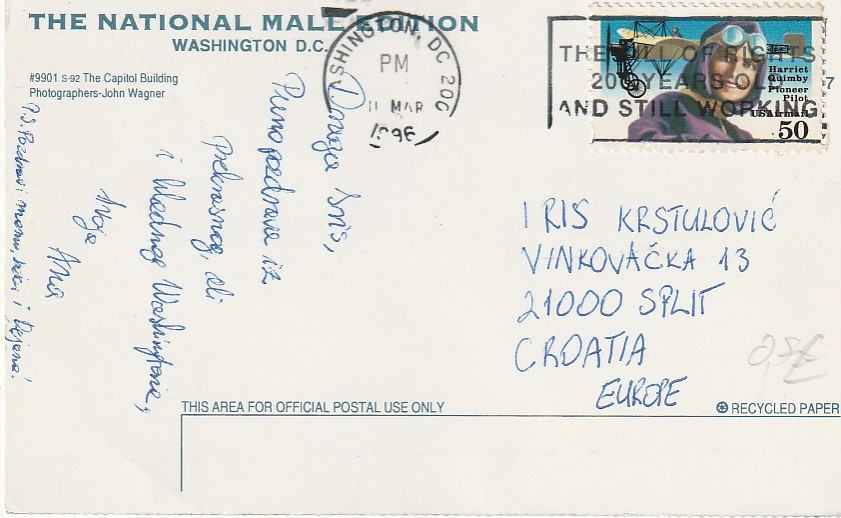 THE NATIONAL MALL EDITION
WASHINGTON D.C.
#9901 S-92 The Capitol Building
Photographers-John Wagner
WASHINGTON, DC 200
PM
11 MAR
1996
THE BILL OF RIGHTS
200 YEARS OLD
AND STILL WORKING
Harriet
Quimby
Pioneer
Pilot
USAirmail
50
7
Draga Iris,
Puno pozdrava iz
prekrasnog, ali
i hladnog Washingtona,
tvoja
Ana
P.S. Pozdravi mamu, seku i Dejana!
IRIS KRSTULOVIĆ
VINKOVAČKA 13
21000 SPLIT
CROATIA
EUROPE
0,5€
THIS AREA FOR OFFICIAL POSTAL USE ONLY
RECYCLED PAPER